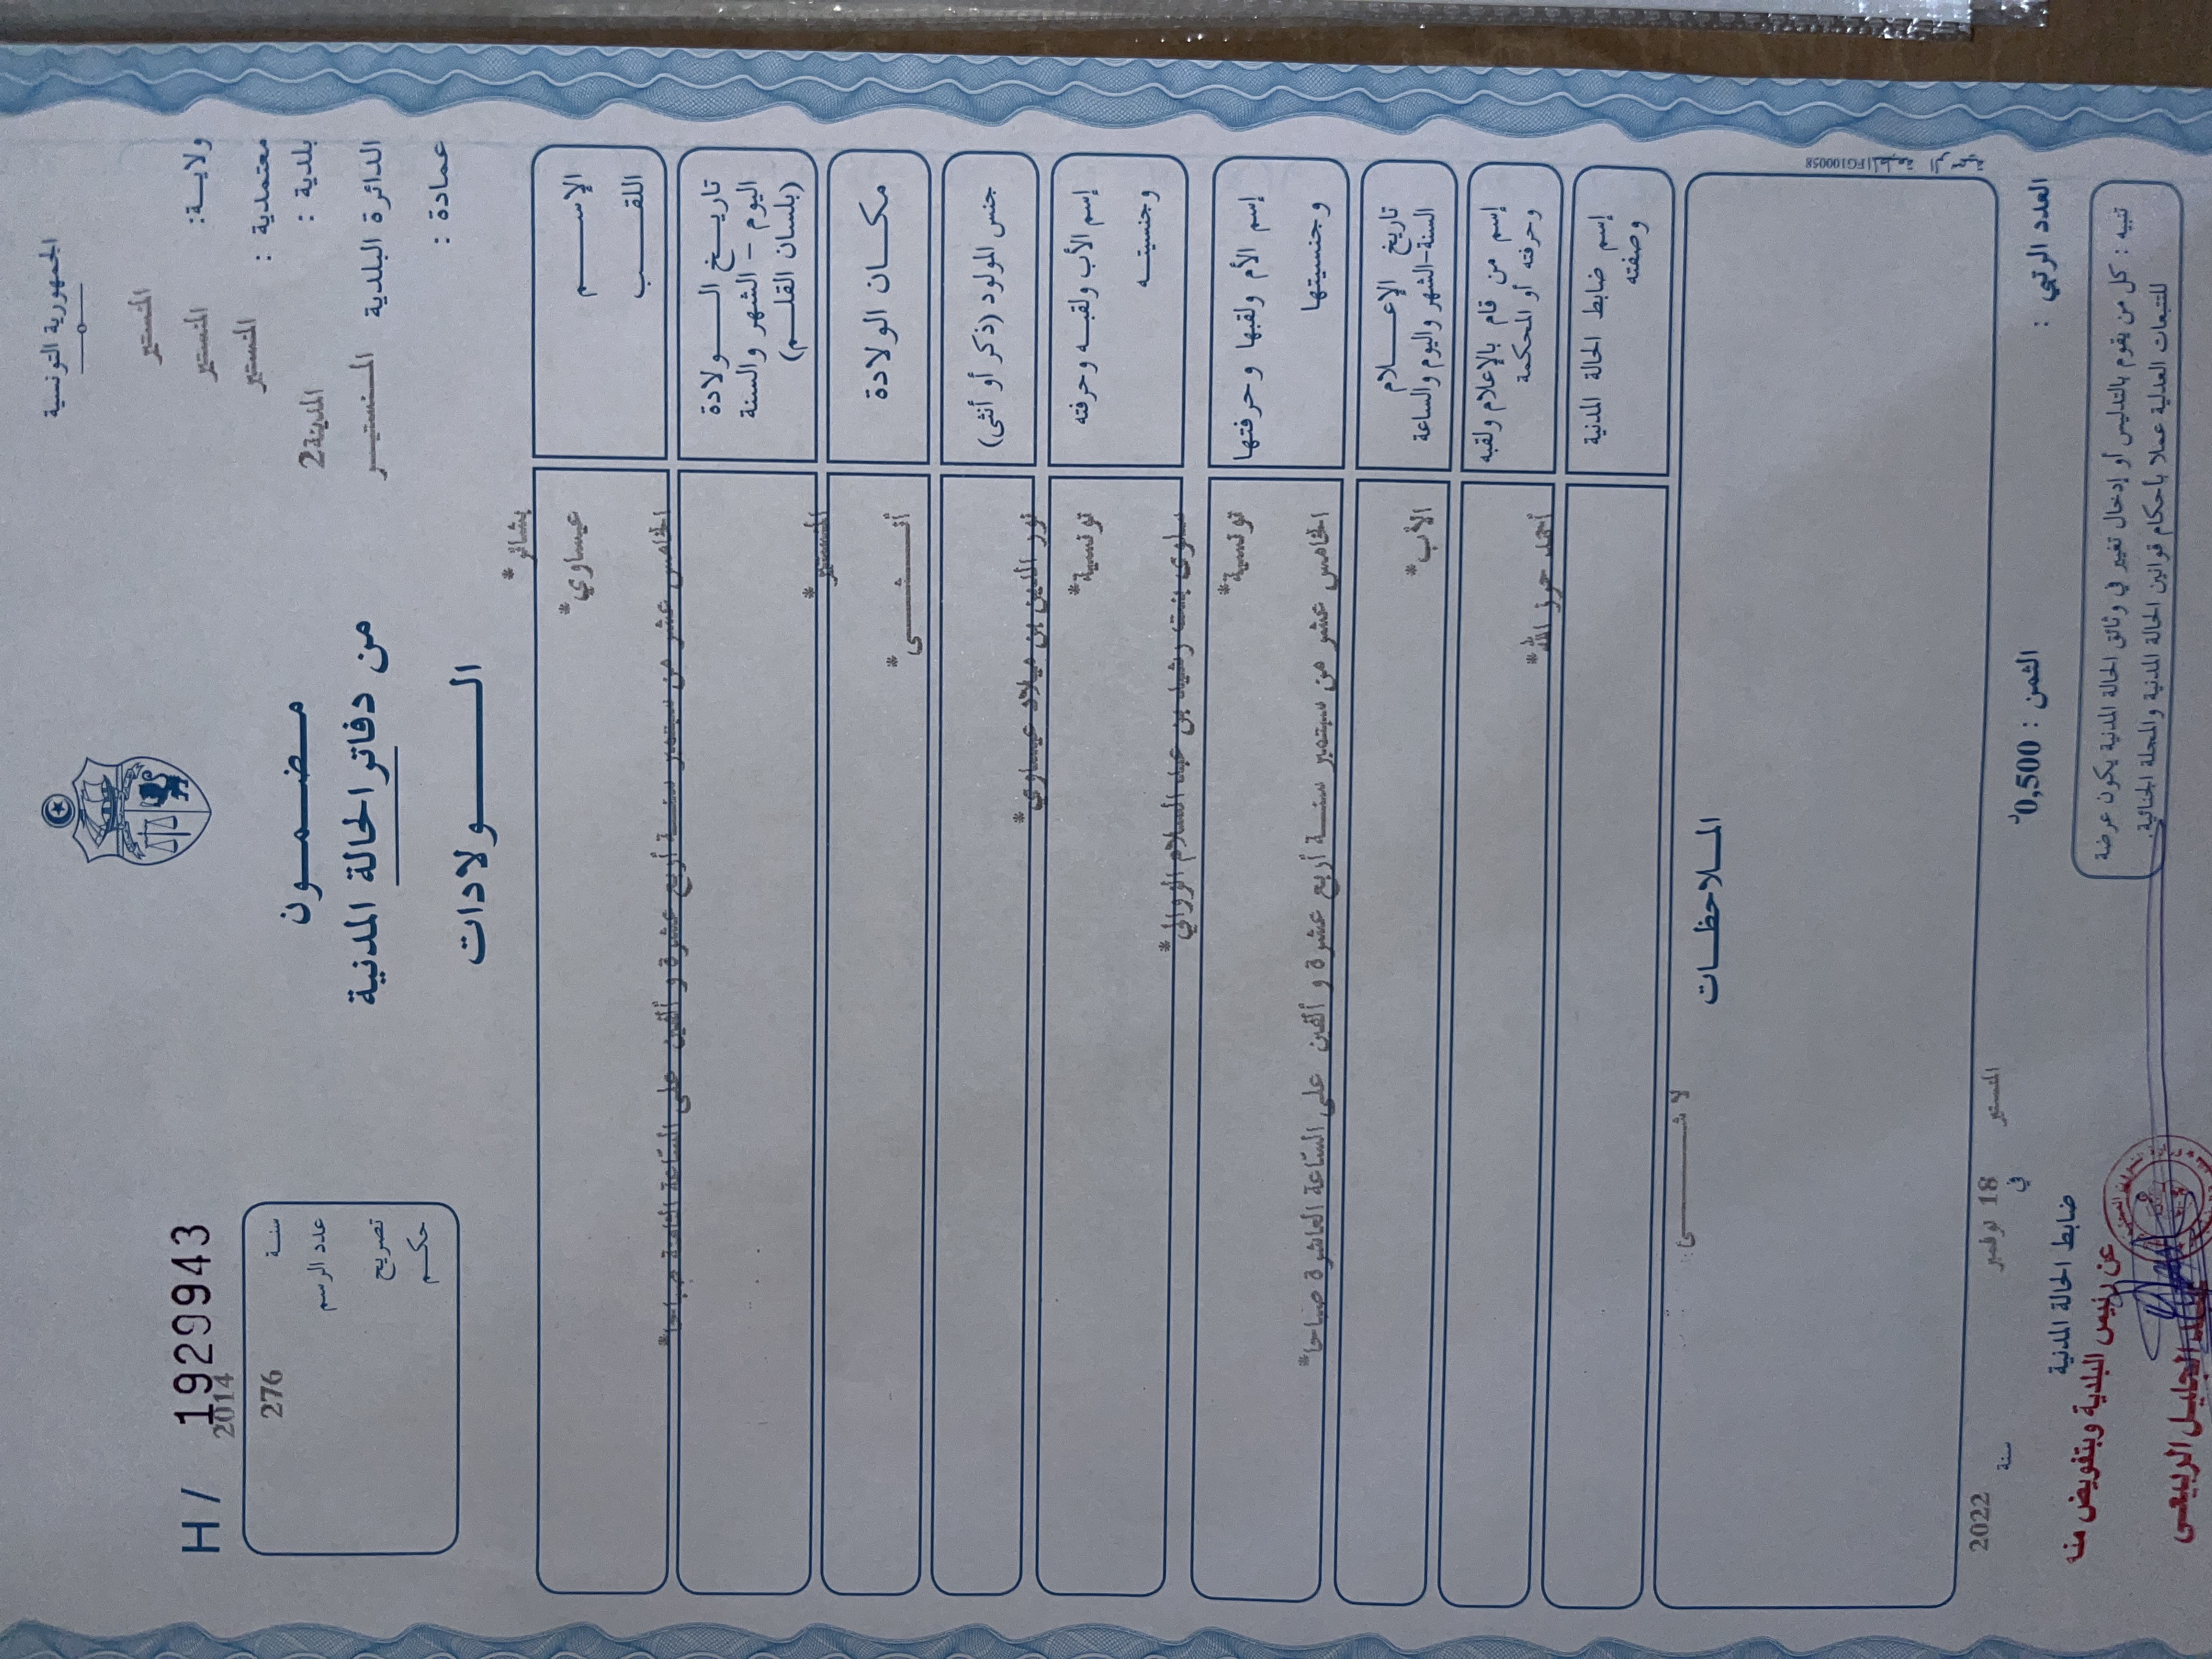 الجمهورية التونسية
ولايـــة:
المنستير
معتمدية :
المنستير
بلدية :
المنستير
الدائرة البلدية
المدينة2
عمادة :
المنستيـــر
H/ 1929943
سنــة
2014
عدد الرسم
276
تصريح
حكــم
مـضـمـون
من دفاتر الحالة المدنية
الــــولادات
الإســـــم
بشائر*
اللقـــــب
عيساوي*
تاريــخ الــــولادة
اليوم - الشهر والسنة
(بلسان القلـــم)
الخامس عشر من سبتمبر سنـــة أربع عشرة و ألفين على الساعة
مكــان الولادة
المنستير*
جنس المولود (ذكر أو أنثى)
أنـــــثـــــى*
إسم الأب ولقبــه وحرفته
نور الدين بن ميلاد عيساوي*
وجنسيتــه
تونسية*
إسم الأم ولقبها وحرفتها
سلوى بنت رشيد بن عبد السلام الزوالي*
وجنسيتها
تونسية*
تاريخ الإعـــلام
السنة-الشهر واليوم والساعة
الخامس عشر من سبتمبر سنـــة أربع عشرة و ألفين على الساعة العاشرة صباحا*
إسم من قام بالإعلام ولقبه
وحرفته أو المحكمة
الأب*
إسم ضابط الحالة المدنية
وصفته
أحمد حرز الله*
المـلاحظــات
لا شـــــــــيء
FG100058
المنستير في 18 نوفمبر سنة 2022
العدد الرتبي :
الثمن : 0,500د
ضابط الحالة المدنية
عن رئيس البلدية وبتفويض منه
الجليـل الربيعـي
تنبيه : كل من يقوم بالتدليس أو إدخال تغيير في وثائق الحالة المدنية يكون عرضة
للتتبعات العدلية عملا بأحكام قوانين الحالة المدنية والمجلة الجنائية.